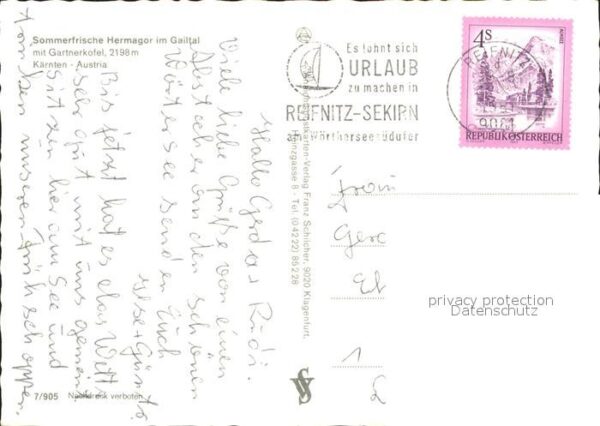 Sommerfrische Hermagor im Gailtal
mit Gartnerkofel, 2198 m
Kärnten - Austria
Es lohnt sich
URLAUB
zu machen in
REIFNITZ-SEKIRN
am Wörthersee-Südufer
REIFNITZ
9081
4S
REPUBLIK ÖSTERREICH
Hallo Gerda u. Rudi.
Viele liebe Grüße von einem
Abstecher an den schönen
Wörtersee senden Euch
Ilse + Günte
Bis jetzt hat es das Wetter
sehr gut mit uns gemeint
sitzen hier am See und
trinken unseren Frühschoppen.
Postkarten-Verlag Franz Schilcher, 9020 Klagenfurt,
gasse 8 - Tel. (04222) 85228
Gerd
1
privacy protection
Datenschutz
7/905 Nachdruck verboten